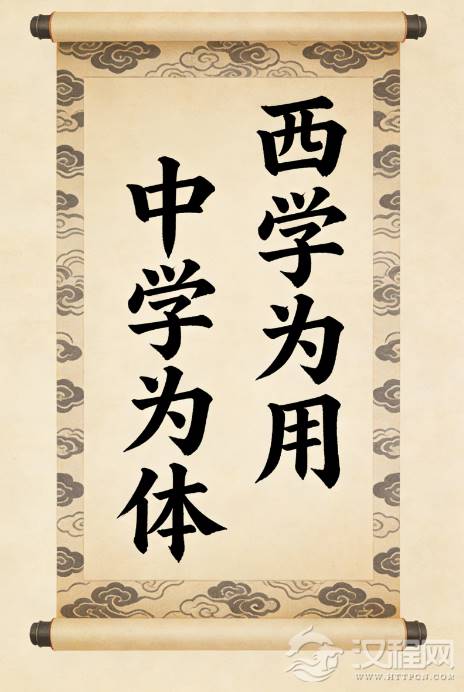 西学为用
中学为体
汉程网
WWW.HTTPCN.COM